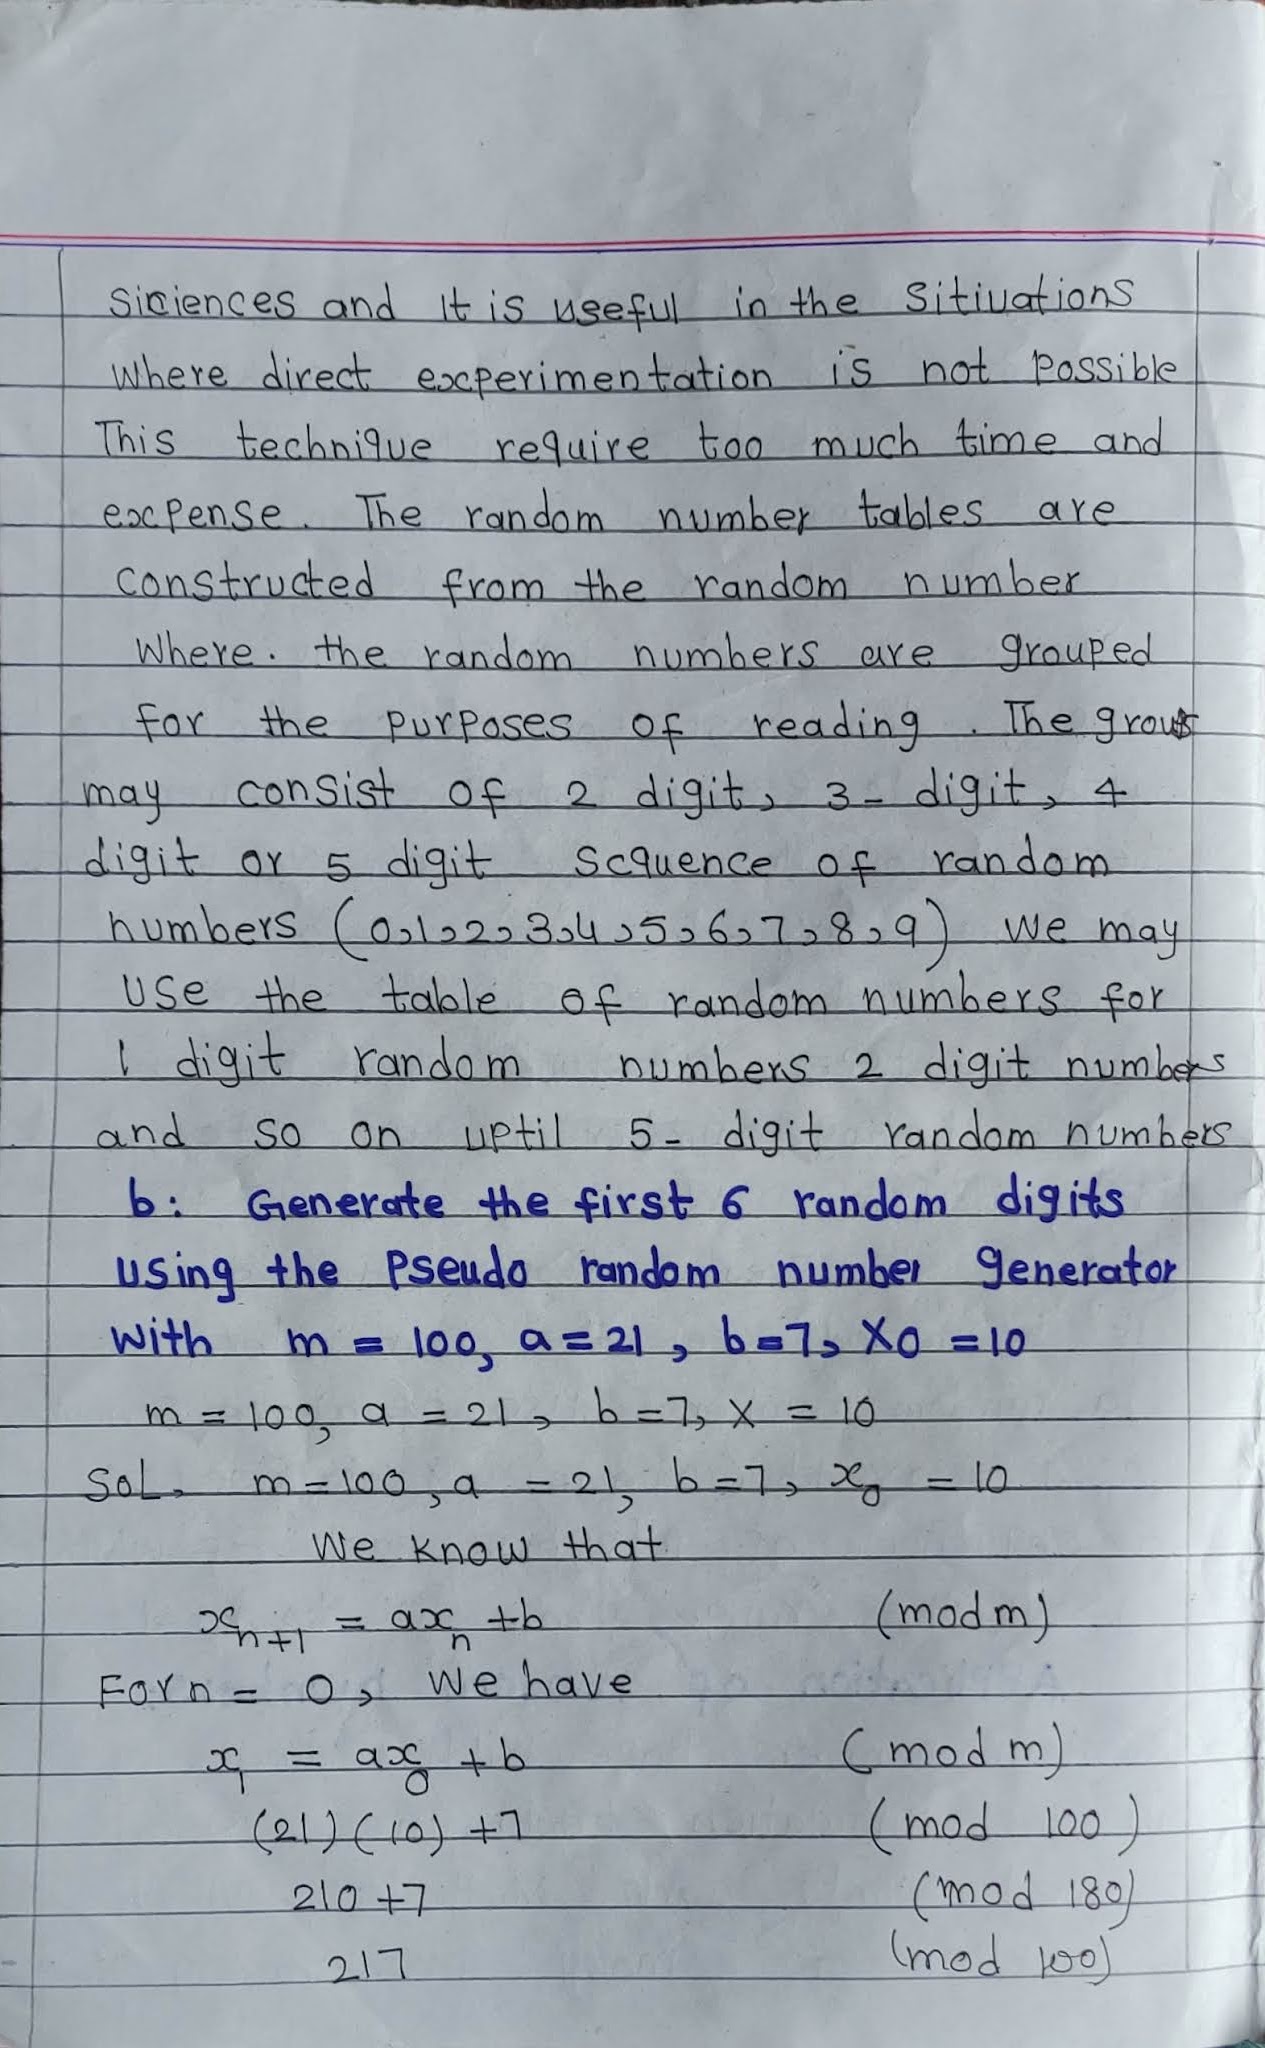 siciences and It is useful in the sitiuations
where direct experimentation is not possible
This technique require too much time and
expense. The random number tables are
constructed from the random number
where. the random numbers are grouped
for the purposes of reading. The group
may consist of 2 digit, 3- digit, 4
digit or 5 digit scquence of random
numbers (0,1,2,3,4,5,6,7,8,9) we may
use the table of random numbers for
1 digit random numbers 2 digit numbers
and so on uptil 5- digit random numbers
b: Generate the first 6 random digits
using the Pseudo random number generator
with m = 100, a = 21, b=7, X0 = 10
m = 100, a = 21, b=7, X = 10
Sol. m=100, a = 21, b=7, x₀ = 10
We know that
xₙ₊₁ = axₙ + b (mod m)
For n = 0, we have
x₁ = ax₀ + b (mod m)
(21)(10) +7 (mod 100)
210 +7 (mod 180)
217 (mod 100)